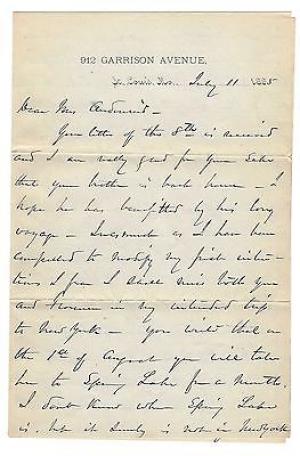 912 GARRISON AVENUE,
St. Louis, Mo., July 11 1885
Dear Mrs
Your letter of the 8th is received
and I am really glad for your sake
that your brother is back home - I
hope he has benefitted by his long
voyage - Inasmuch as I have been
compelled to modify my first inten-
tions I fear I shall miss both you
and Florence in my intended trip
to New York - You write that on
the 1st of August you will take
her to Spring Lake for a month.
I don't know where Spring Lake
is, but it surely is not in New York